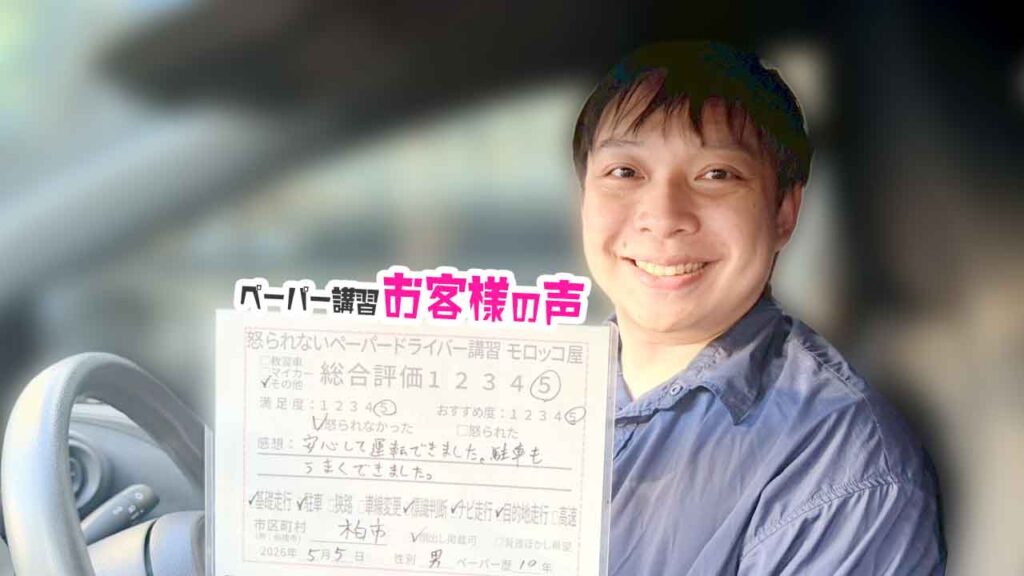 ペーパー講習 お客様の声
怒られないペーパードライバー講習 モロッコ屋
□教習車
□マイカー
✓その他
総合評価 1 2 3 4 ⑤
満足度:1 2 3 4 ⑤ おすすめ度:1 2 3 4 ⑤
✓怒られなかった □怒られた
感想:安心して運転できました。駐車も
うまくできました。
✓基礎走行 ✓駐車 □狭路 □車線変更 ✓標識判断 ✓ナビ走行 ✓目的地走行 □高速
市区町村 柏市
✓顔出し掲載可 □背景ぼかし希望
2026年 5月 5日 性別 男 ペーパー歴 10年